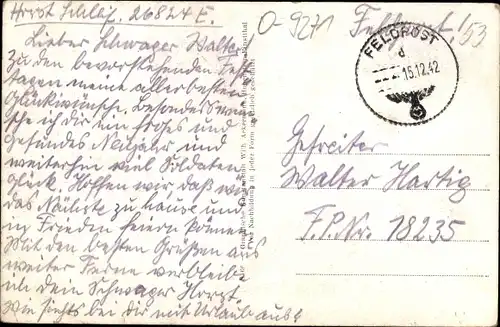 Horst Schlej. 26824 E.
O-9271
Feldpost!
53
Lieber Schwager Walter
Zu den bevorstehenden Fest-
tagen meine allerbesten
Glückwünsche. Besonders wün-
sche ich dir ein frohes und
gesundes Neujahr und
weiterhin viel Soldaten
glück. Hoffen wir daß wir
das Nächste zu Hause und
in Frieden feiern können.
Mit den besten Grüßen aus
weiter Ferne verbleibe
ich dein Schwager Horst.
Wie siehts bei dir mit Urlaub aus?
FELDPOST
d
15.12.42
Gefreiter
Walter Hartig
F.P.Nr. 18235